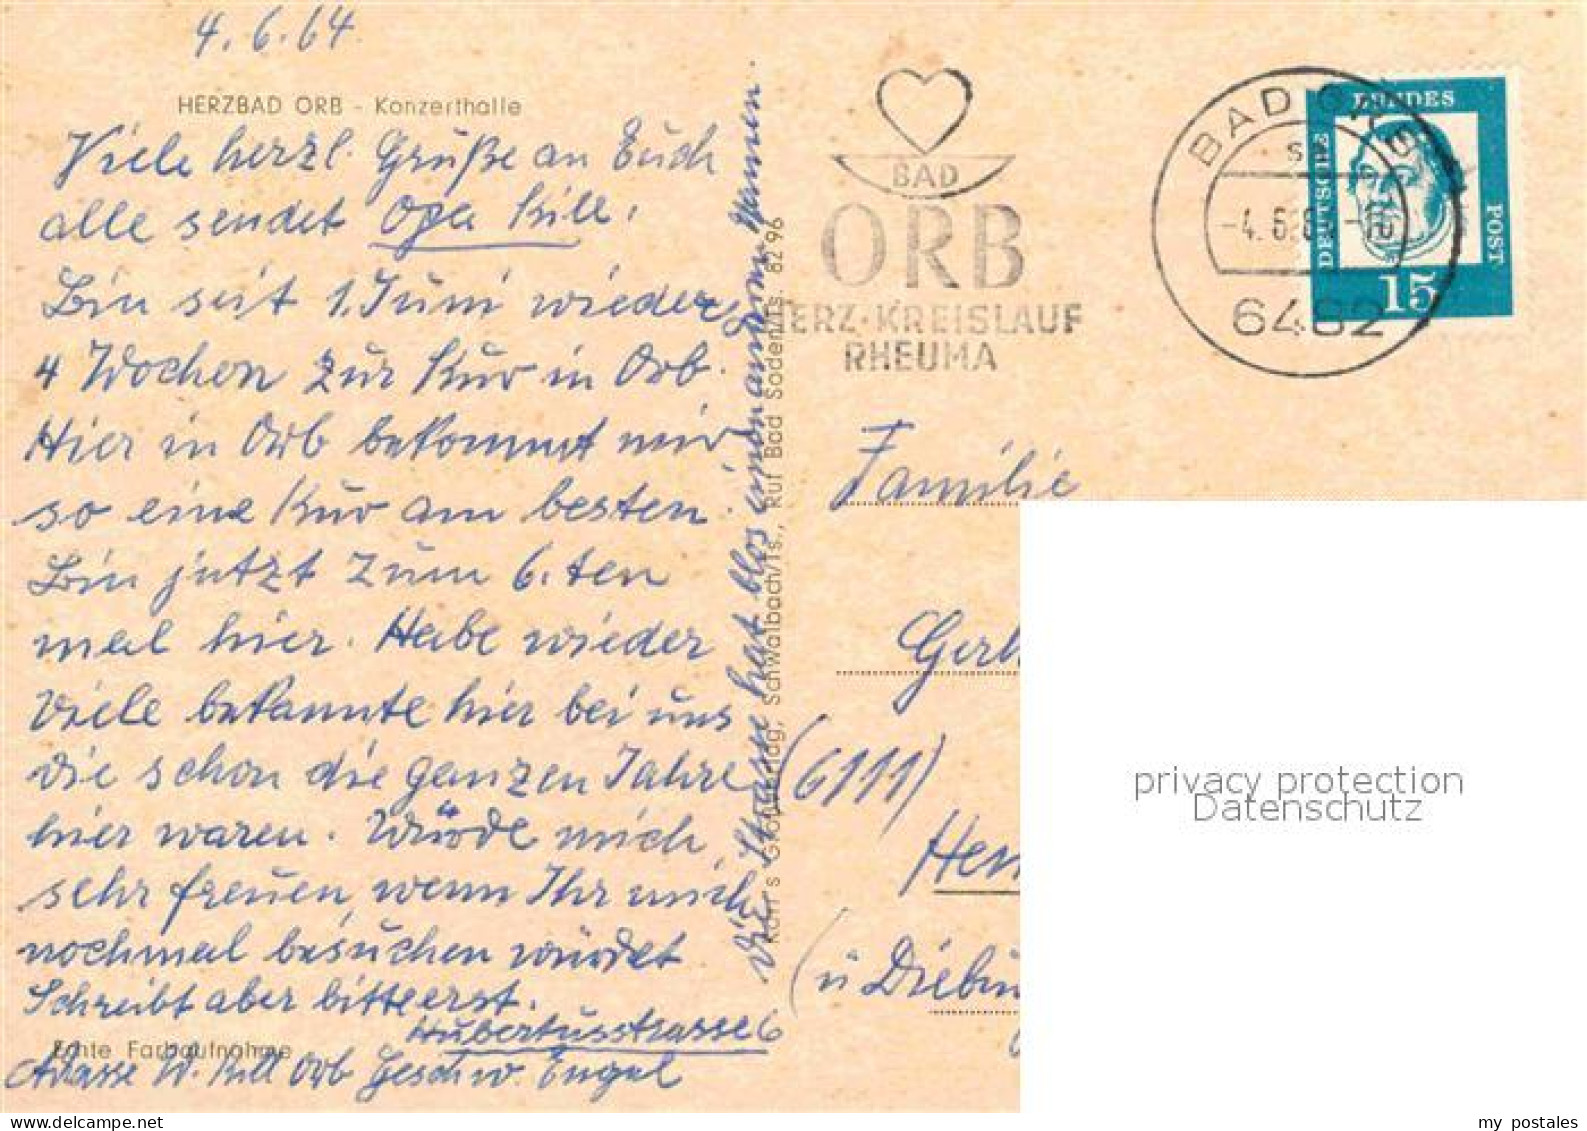 4. 6. 64
HERZBAD ORB - Konzerthalle
Viele herzl. Grüße an Euch
alle sendet Opa Kill.
Bin seit 1. Juni wieder
4 Wochen zur Kur in Orb.
Hier in Orb bekommt mir
so eine Kur am besten.
Bin jetzt zum 6. ten
mal hier. Habe wieder
viele bekannte hier bei uns
die schon die ganzen Jahre
hier waren. Würde mich
sehr freuen, wenn Ihr mich
nochmal besuchen würdet
Schreibt aber bitte erst.
Hubertusstrasse 6
Echte Farbaufnahme
Adresse W. Kill Orb Geschw. Engel
die Strasse hat blos einen anderen Namen.
Karl's Großverlag, Schwalbach/Ts., Ruf Bad Soden/Ts. 82 96
BAD
ORB
HERZ·KREISLAUF
RHEUMA
BAD ORB
-4. 6. -16
6482
DEUTSCHE
BUNDES
POST
15
Familie
Gerh
(6111)
(ü Diebu
privacy protection
Datenschutz
my postales